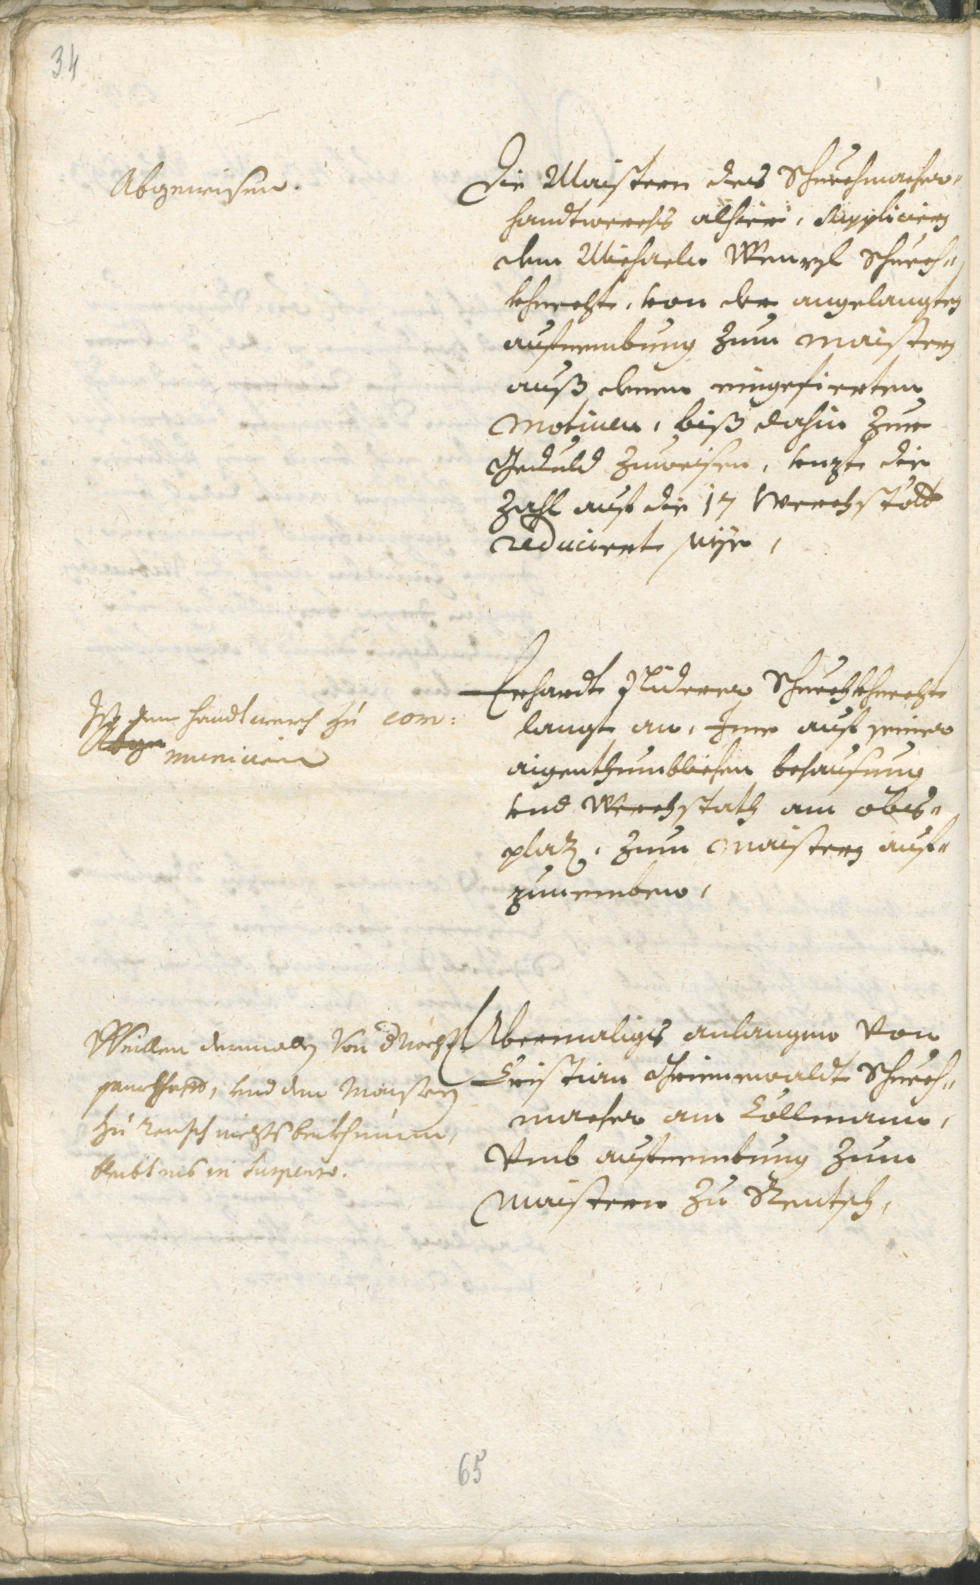 34
Abgewisen.
Die Maistern des Schuechmacher-
handtwerchs alhier, suppliciern
dem Michaeln Wenzl Schuech-
khnecht, von der angelangten
aufnembung zum maistern
auß denen eingefierten
motiven, biß dahin zur
Gedult zuweisen, die
Zahl auf die 17 Werchstött
reduciert seye,
Ist dem Handtwerch zu com:
municiern
Erhardt Schuechkhnecht
langt an, Ime auf seiner
aigenthumblichen behausung
und Werchstath am obs-
plaz, zum Maistern auf-
zunemben,
Weillen dermallen von
und den Maistern
zu Rentsch
bleibt es in suspenso.
Abermaliges anlangen von
Cristian Grienewaldt Schuech-
macher am Collmann,
Umb aufnembung zum
Maistern zu Rentsch,
65